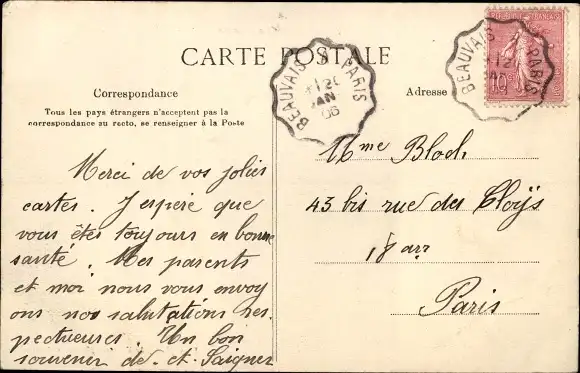 CARTE POSTALE
Correspondance
Tous les pays étrangers n'acceptent pas la
correspondance au recto, se renseigner à la Poste
Merci de vos jolies
cartes. J'espère que
vous êtes toujours en bonne
santé. Mes parents
et moi nous vous envoy
ons nos salutations res
pectueuses. Un bon
souvenir de
Adresse
Mme Bloch
43 bis rue des Cloÿs
18 arr
Paris
BEAUVAIS A PARIS
12
JAN
06
BEAUVAIS PARIS
12
RÉPUBLIQUE FRANÇAISE
10